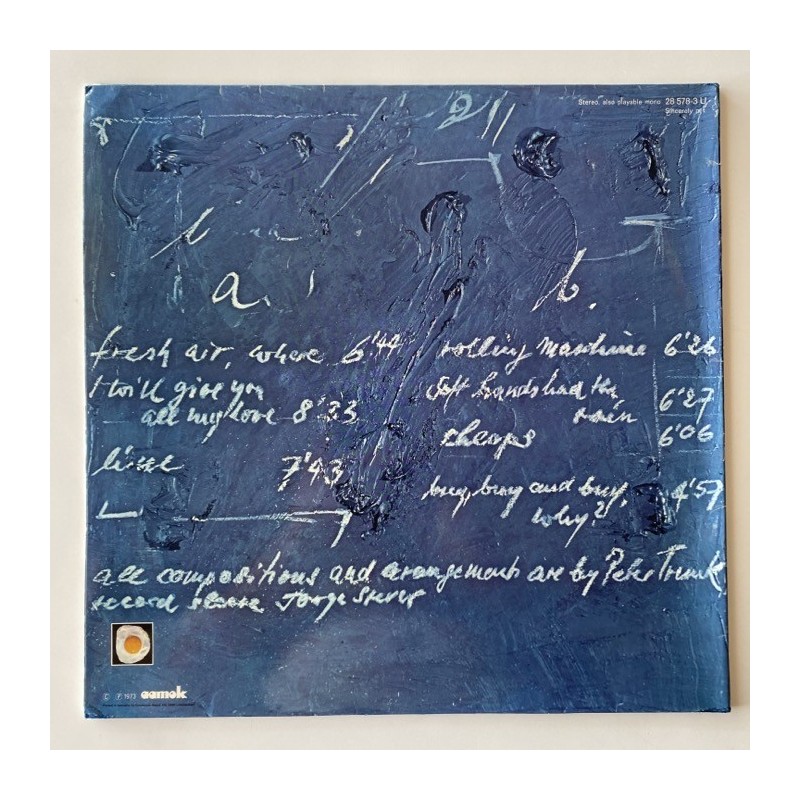 Stereo, also playable mono 28 578-3 U
Sincerely P.T.
a.
b.
fresh air, where 6'44
I will give you
all my love 8'33
7'43
rolling maschine 6'26
soft hands had the
rain 6'27
cheops 6'06
buy, buy and buy,
why? 4'57
all compositions and arangements are by Peter Trunk
record sleeve
© ℗ 1973 aamok